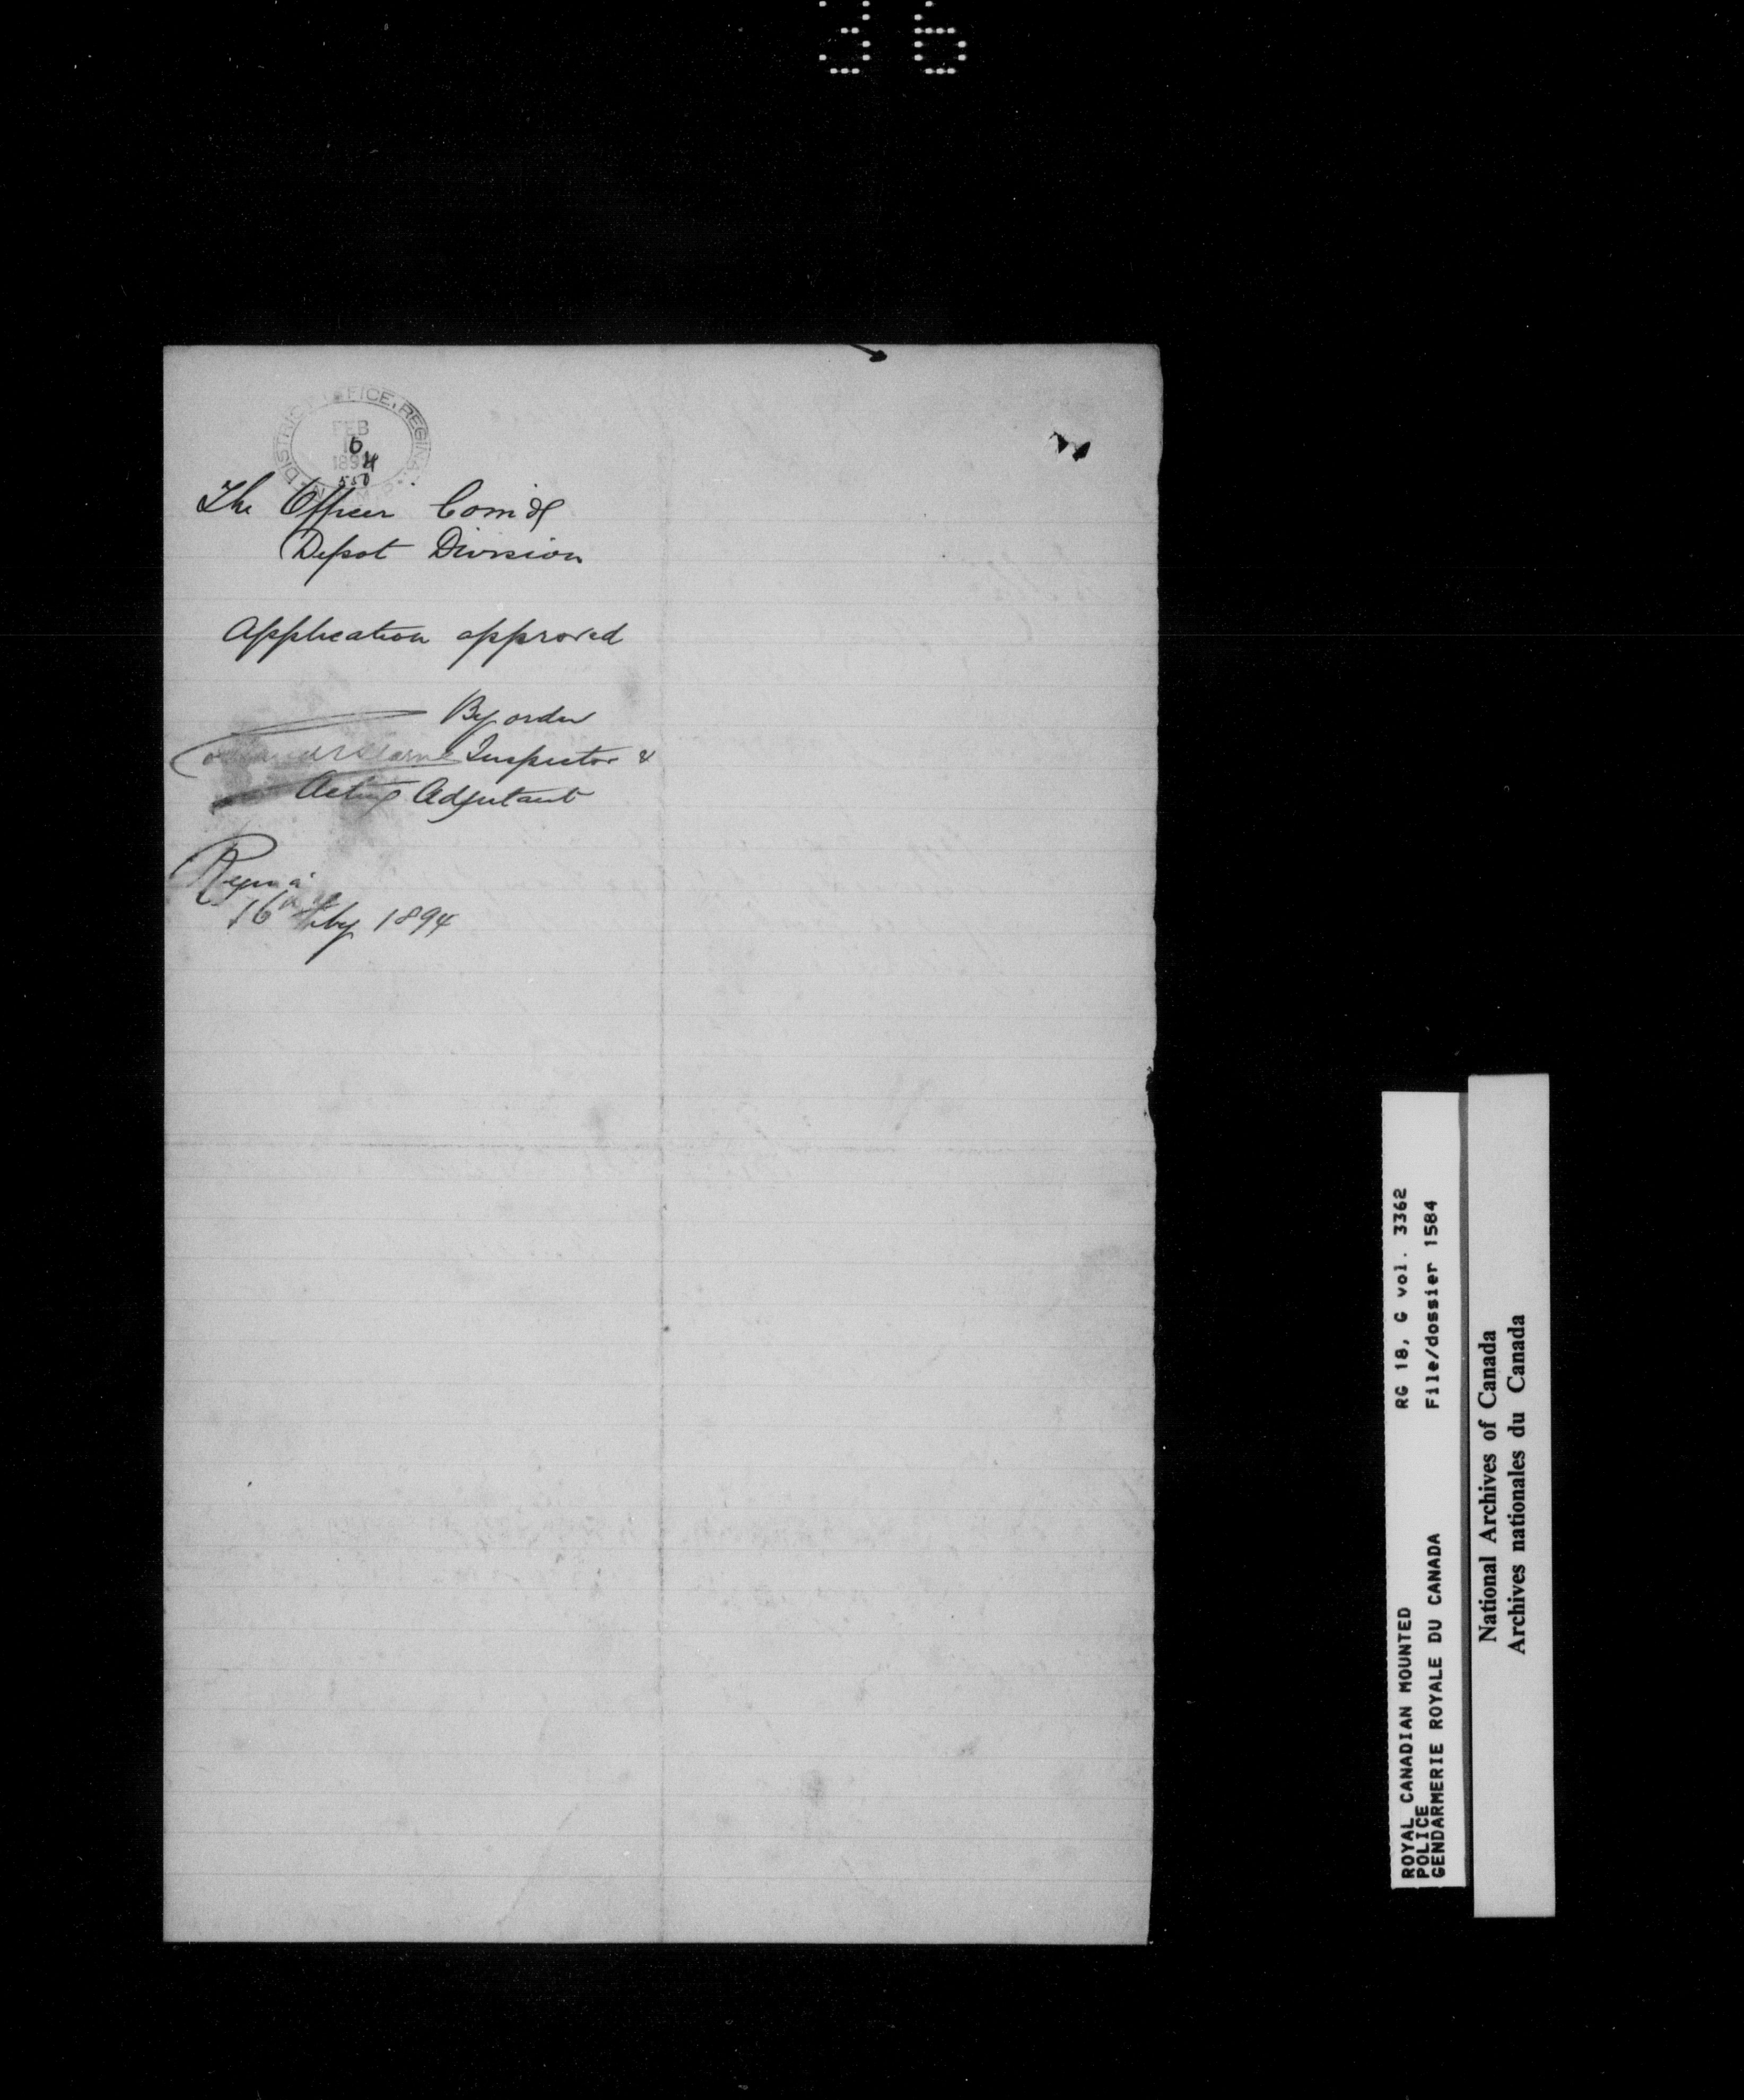 36
DISTRICT OFFICE, REGINA.
FEB
16
1894
550
The Officer Com'd
Depot Division
Application approved
By order
Inspector &
Acting Adjutant
Regina
16th Feby 1894
RG 18, G vol. 3362
File/dossier 1584
ROYAL CANADIAN MOUNTED
POLICE
GENDARMERIE ROYALE DU CANADA
National Archives of Canada
Archives nationales du Canada